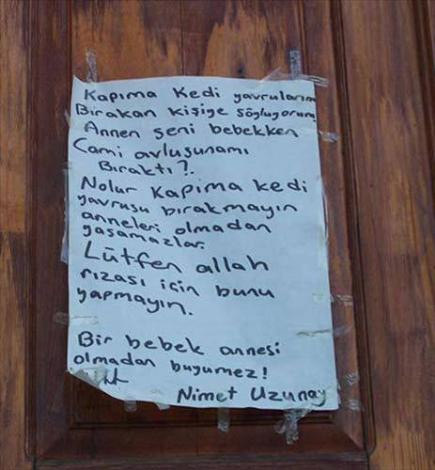 Kapıma Kedi yavrularını
Bırakan kişiye söylüyorum
Annen seni bebekken
Cami avlusunamı
Bıraktı?.
Nolur kapıma kedi
yavrusu bırakmayın
anneleri olmadan
yaşamazlar.
Lütfen allah
rızası için bunu
yapmayın.
Bir bebek annesi
olmadan buyumez!
Nimet Uzunay